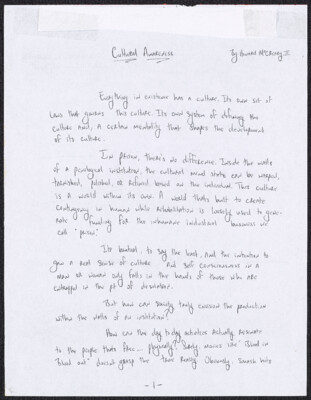 Cultural Awareness
By
Everything in existence has a culture. Its own set of
laws that governs this culture. Its own system of defining the
culture and, a certain mentality that shapes the development
of its culture.
In prison, there's no difference. Inside the walls
of a penological institution, the cultural mind state can be warped,
tarnished, polished, or refined based on the individual. This culture
is a world within its own. A world that's built to create
in humans while rehabilitation is loosely used to gene-
rate funding for the inhumane industrial business we
call "prison".
Its brutal, to say the least. And the intention to
gain a real sense of culture and self consciousness in a
man or woman only falls in the hands of those who are
entrapped in the pit of desolation.
But how can society truly the production
within the walls of an institution?
How can the day to day activities actually resonate
to the people that ... physically? Sadly, movies like "Blood in
Blood out" doesnt grasp the true Obviously,
-1-